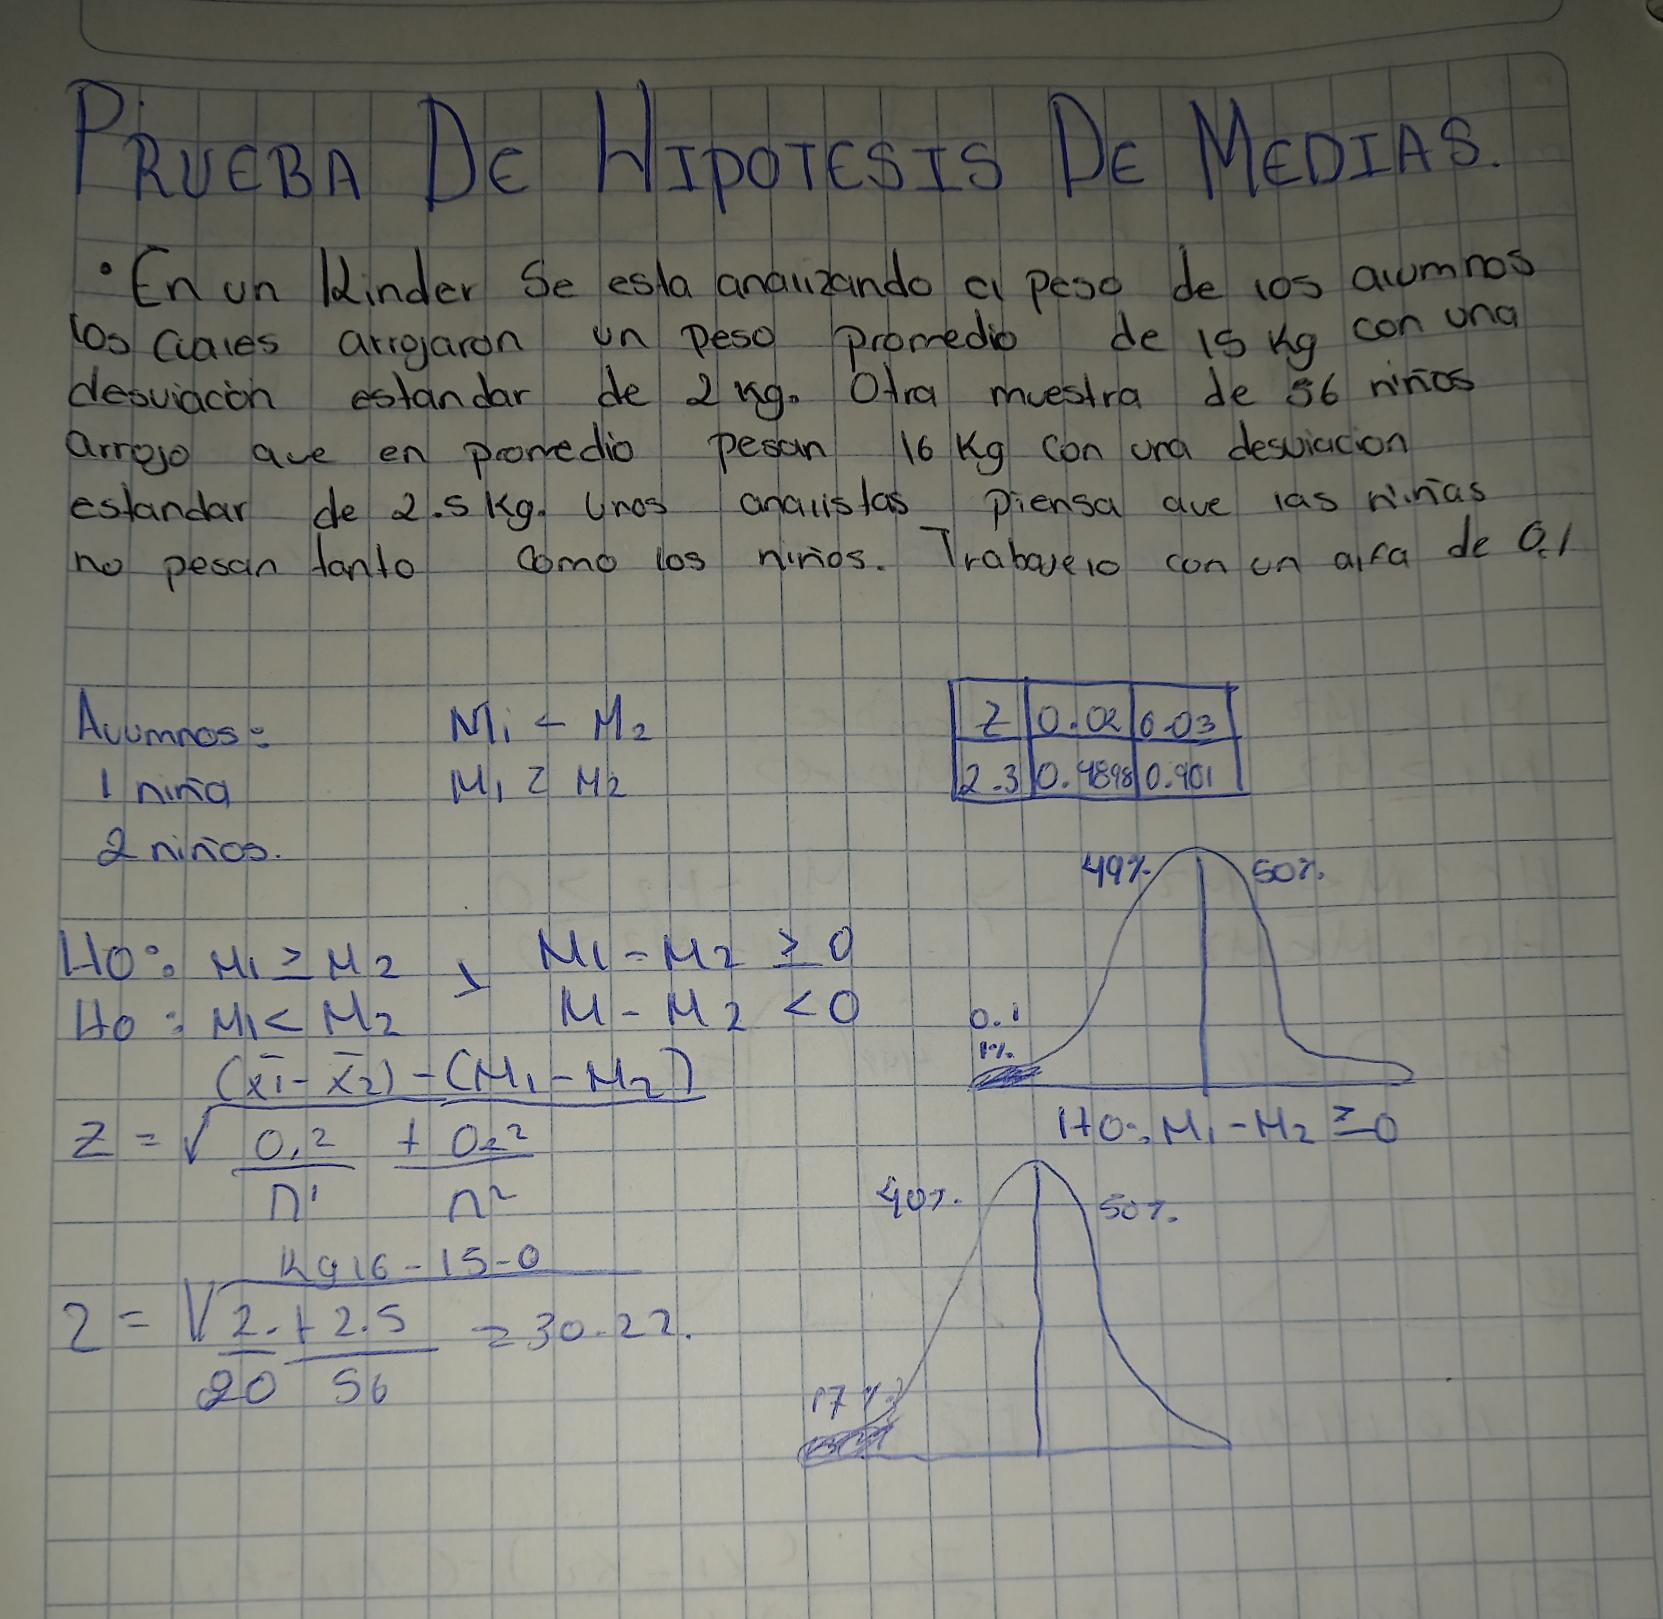 PRUEBA DE HIPOTESIS DE MEDIAS.
• En un Kinder Se esta analizando el peso de los alumnos
los cuales arrojaron un peso promedio de 15 Kg con una
desviación estandar de 2 kg. Otra muestra de 56 niños
arrojo que en promedio pesan 16 Kg con una desviacion
estandar de 2.5 Kg. Unos analistas piensa que las niñas
no pesan tanto como los niños. Trabajelo con un alfa de 0.1
Alumnos:
1 niña
2 niños.
M1 < M2
M1 ≥ M2
Z 0.02 0.03
2.3 0.4898 0.901
49% 50%
0.1
1%
H0: M1 - M2 ≥ 0
H0: M1 ≥ M2 , M1 - M2 ≥ 0
H0: M1 < M2 M - M2 < 0
(x̄1 - x̄2) - (M1 - M2)
Z = √ 0.2 + 0.2²
n1 n2
Kg 16 - 15 - 0
Z = √ 2. + 2.5 = 30.22.
20 56
40% 50%
17%